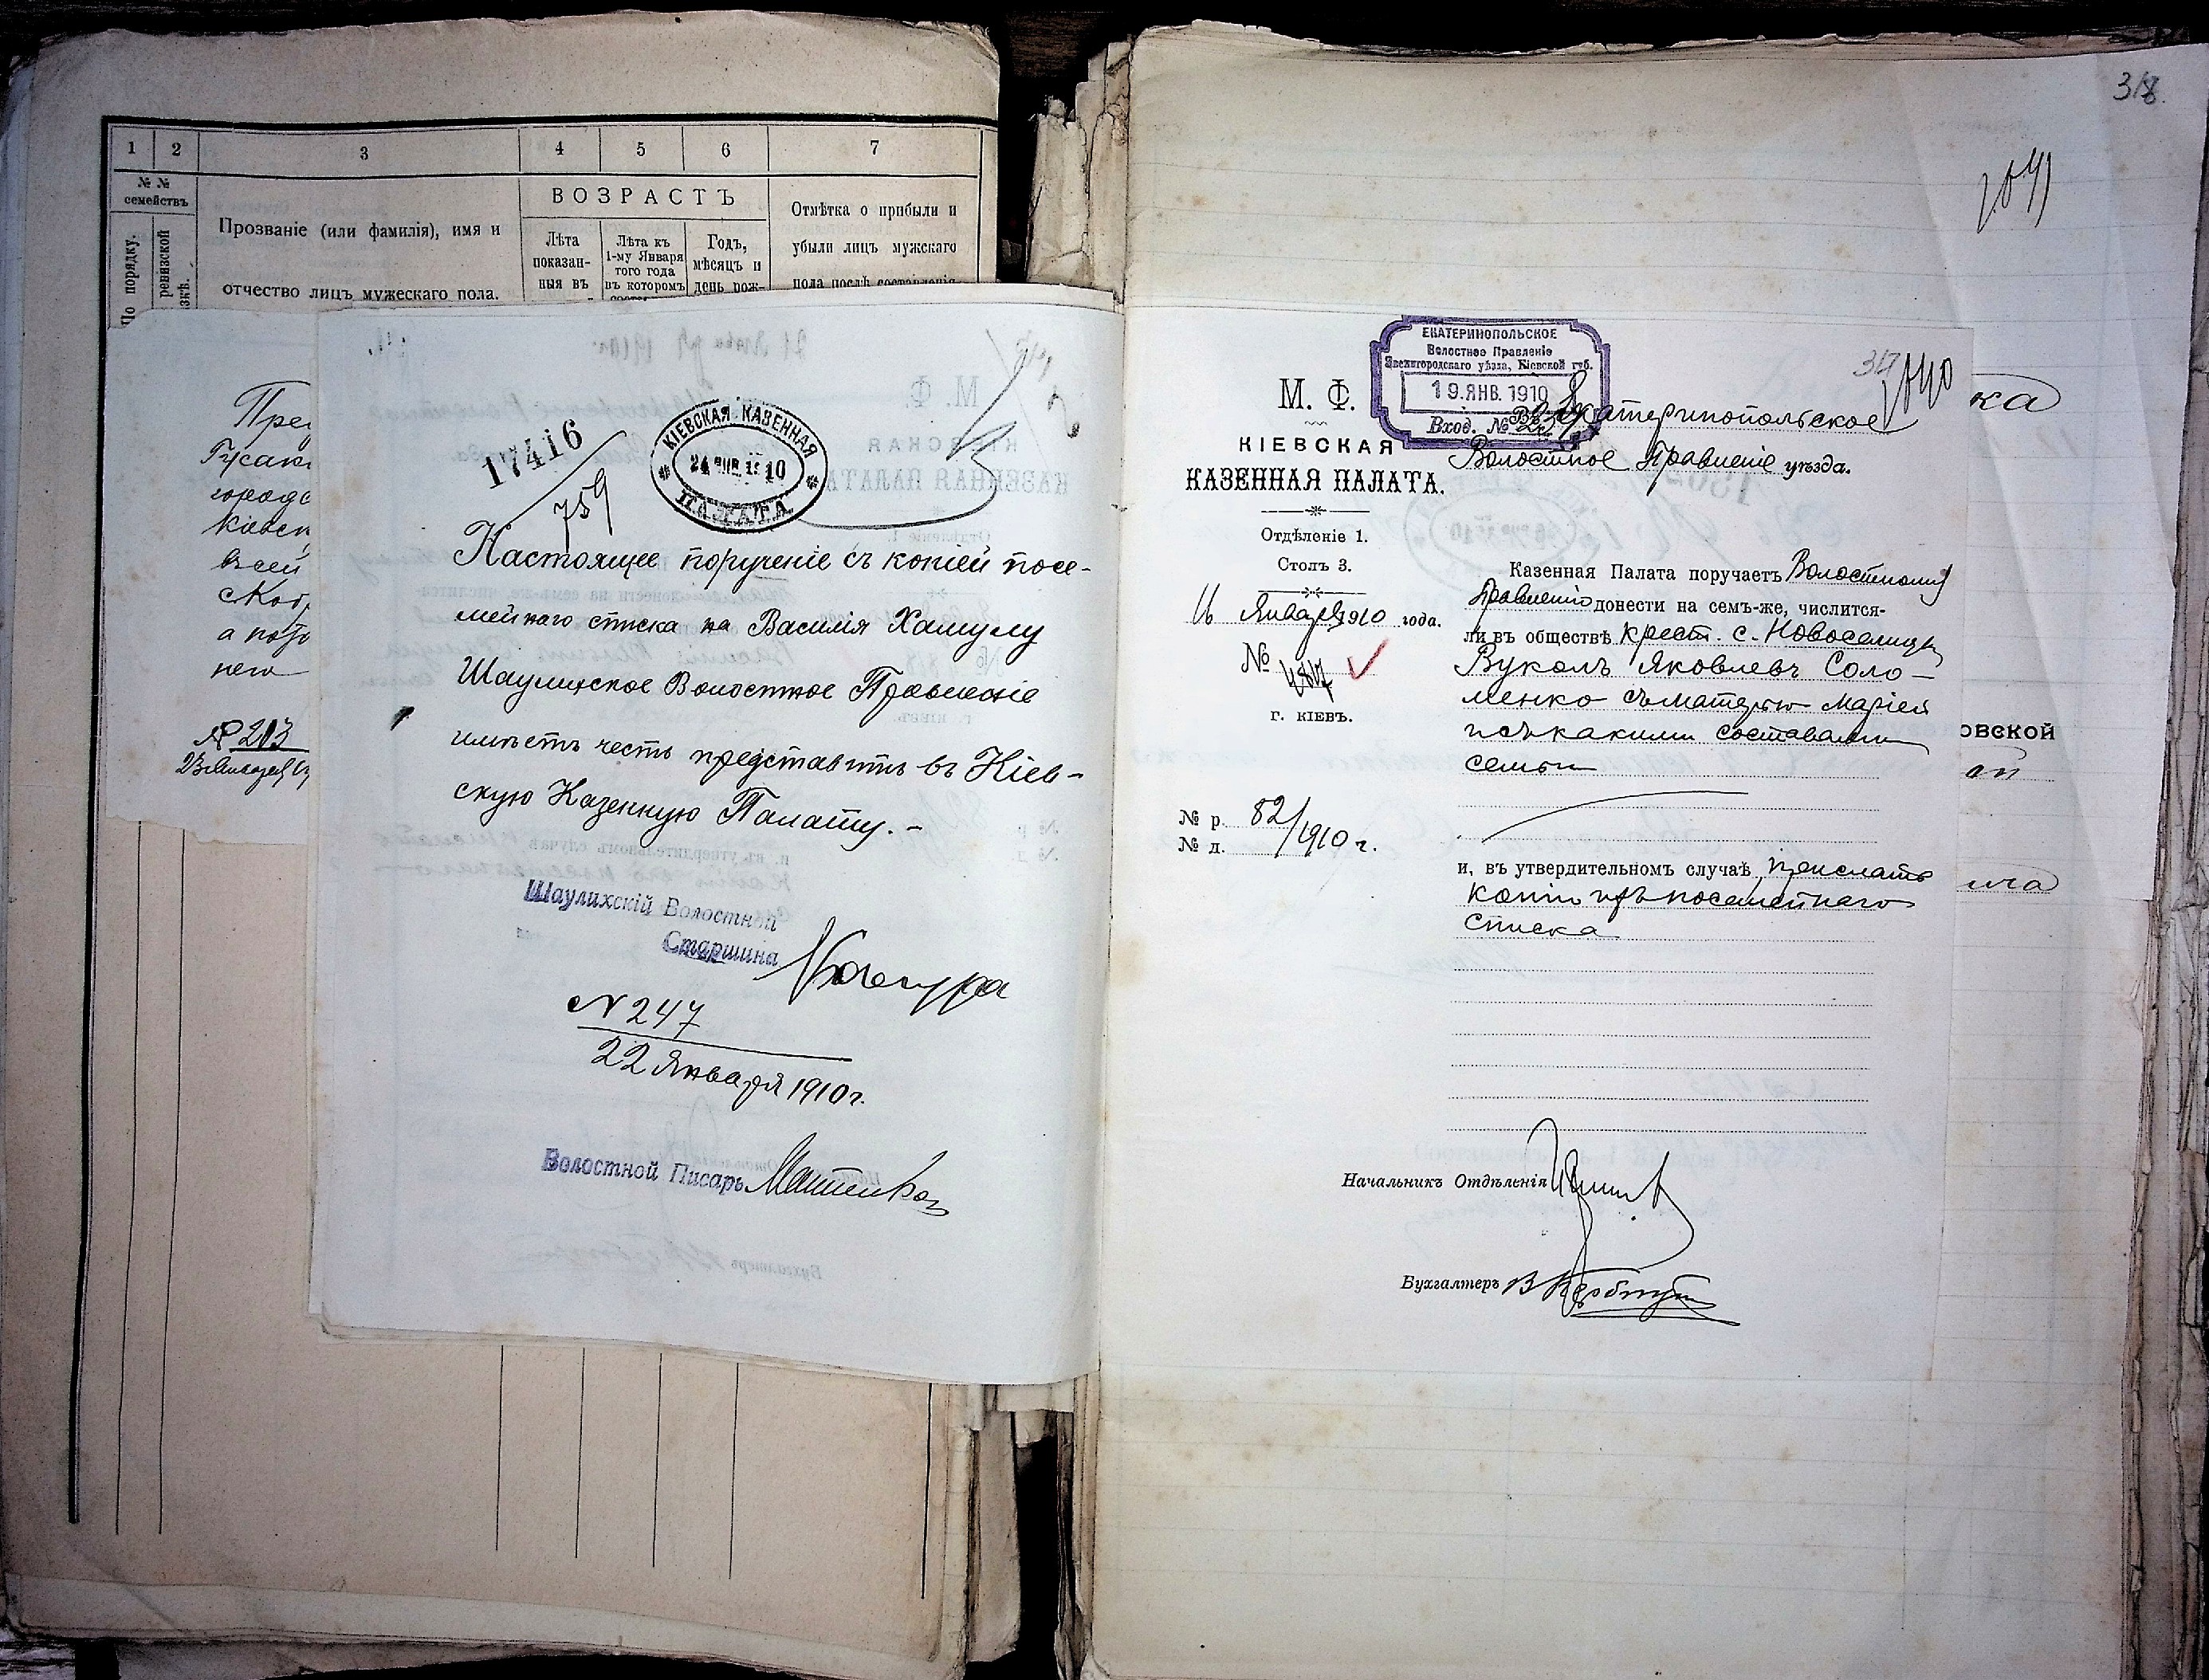 1 2 3 4 5 6 7
№ №
семействъ
По порядку.
ревизской
Прозваніе (или фамилія), имя и
отчество лицъ мужескаго пола.
ВОЗРАСТЪ
Лѣта
показан-
ныя въ
Лѣта къ
1-му Января
того года
въ которомъ
Годъ,
мѣсяцъ и
день рож-
Отмѣтка о прибыли и
убыли лицъ мужскаго
пола послѣ составленія
всей
него
№ 213
17416
759
КІЕВСКАЯ КАЗЕННАЯ
24 ЯНВ 1910
ПАЛАТА
Настоящее порученіе съ копіей посе-
мейнаго списка на Василія Хамулу
Шаулихское Волостное Правленіе
имѣетъ честь представить въ Кіев-
скую Казенную Палату.-
Шаулихскій Волостной
Старшина
N 247
22 Января 1910 г.
Волостной Писарь
318
1041
ЕКАТЕРИНОПОЛЬСКОЕ
Волостное Правленіе
Звенигородскаго уѣзда, Кіевской губ.
19.ЯНВ.1910
Вход. №
317
1040
М. Ф.
КІЕВСКАЯ
КАЗЕННАЯ ПАЛАТА.
Отдѣленіе 1.
Столъ 3.
Января 1910 года.
№
г. КІЕВЪ.
№ р. 82/1910 г.
№ д.
Екатеринопольское
Волостное Правленіе уѣзда.
Казенная Палата поручаетъ Волостному
Правленію донести на семъ-же, числится-
ли въ обществѣ крест. с. Новоселицы
Вуколъ Яковлевъ Соло-
менко съ матерью Маріей
и съ какимъ составомъ
семьи
и, въ утвердительномъ случаѣ, прислать
копію изъ посемейнаго
списка
Начальникъ Отдѣленія
Бухгалтеръ
ка
овской